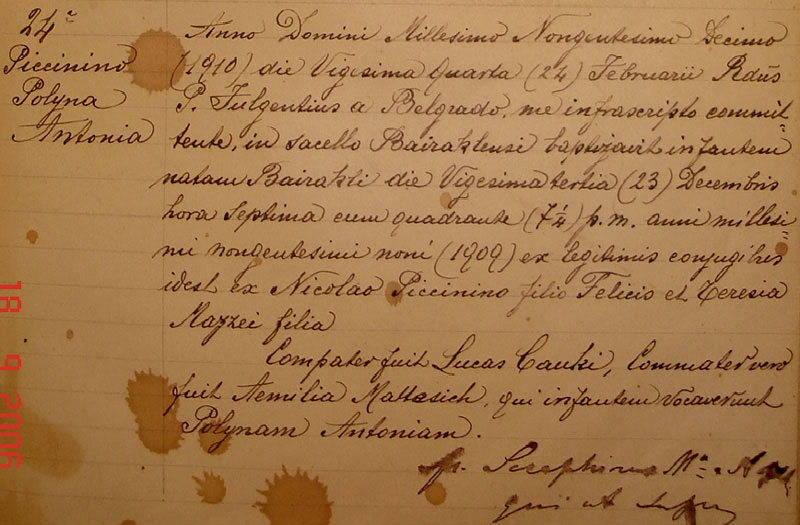 24ª
Piccinino
Polyna
Antonia
Anno Domini Millesimo Nongentesimo Decimo
(1910) die Vigesima Quarta (24) Februarii Rdus
P. Fulgentius a Belgrado, me infrascripto commit=
tente, in sacello Bairaklensi baptizavit infantem
natam Bairakli die Vigesima tertia (23) Decembris
hora septima cum quadrante (7¼) p.m. anni millesi=
mi nongentesimi noni (1909) ex legitimis conjugibus
idest ex Nicolao Piccinino filio Felicis et Teresia
Mazzei filia
Compater fuit Lucas Cauki, Commater vero
fuit Aemilia Maltesich, qui infantem vocaverunt
Polynam Antoniam.
Seraphinus Mª
qui
18 9 2006